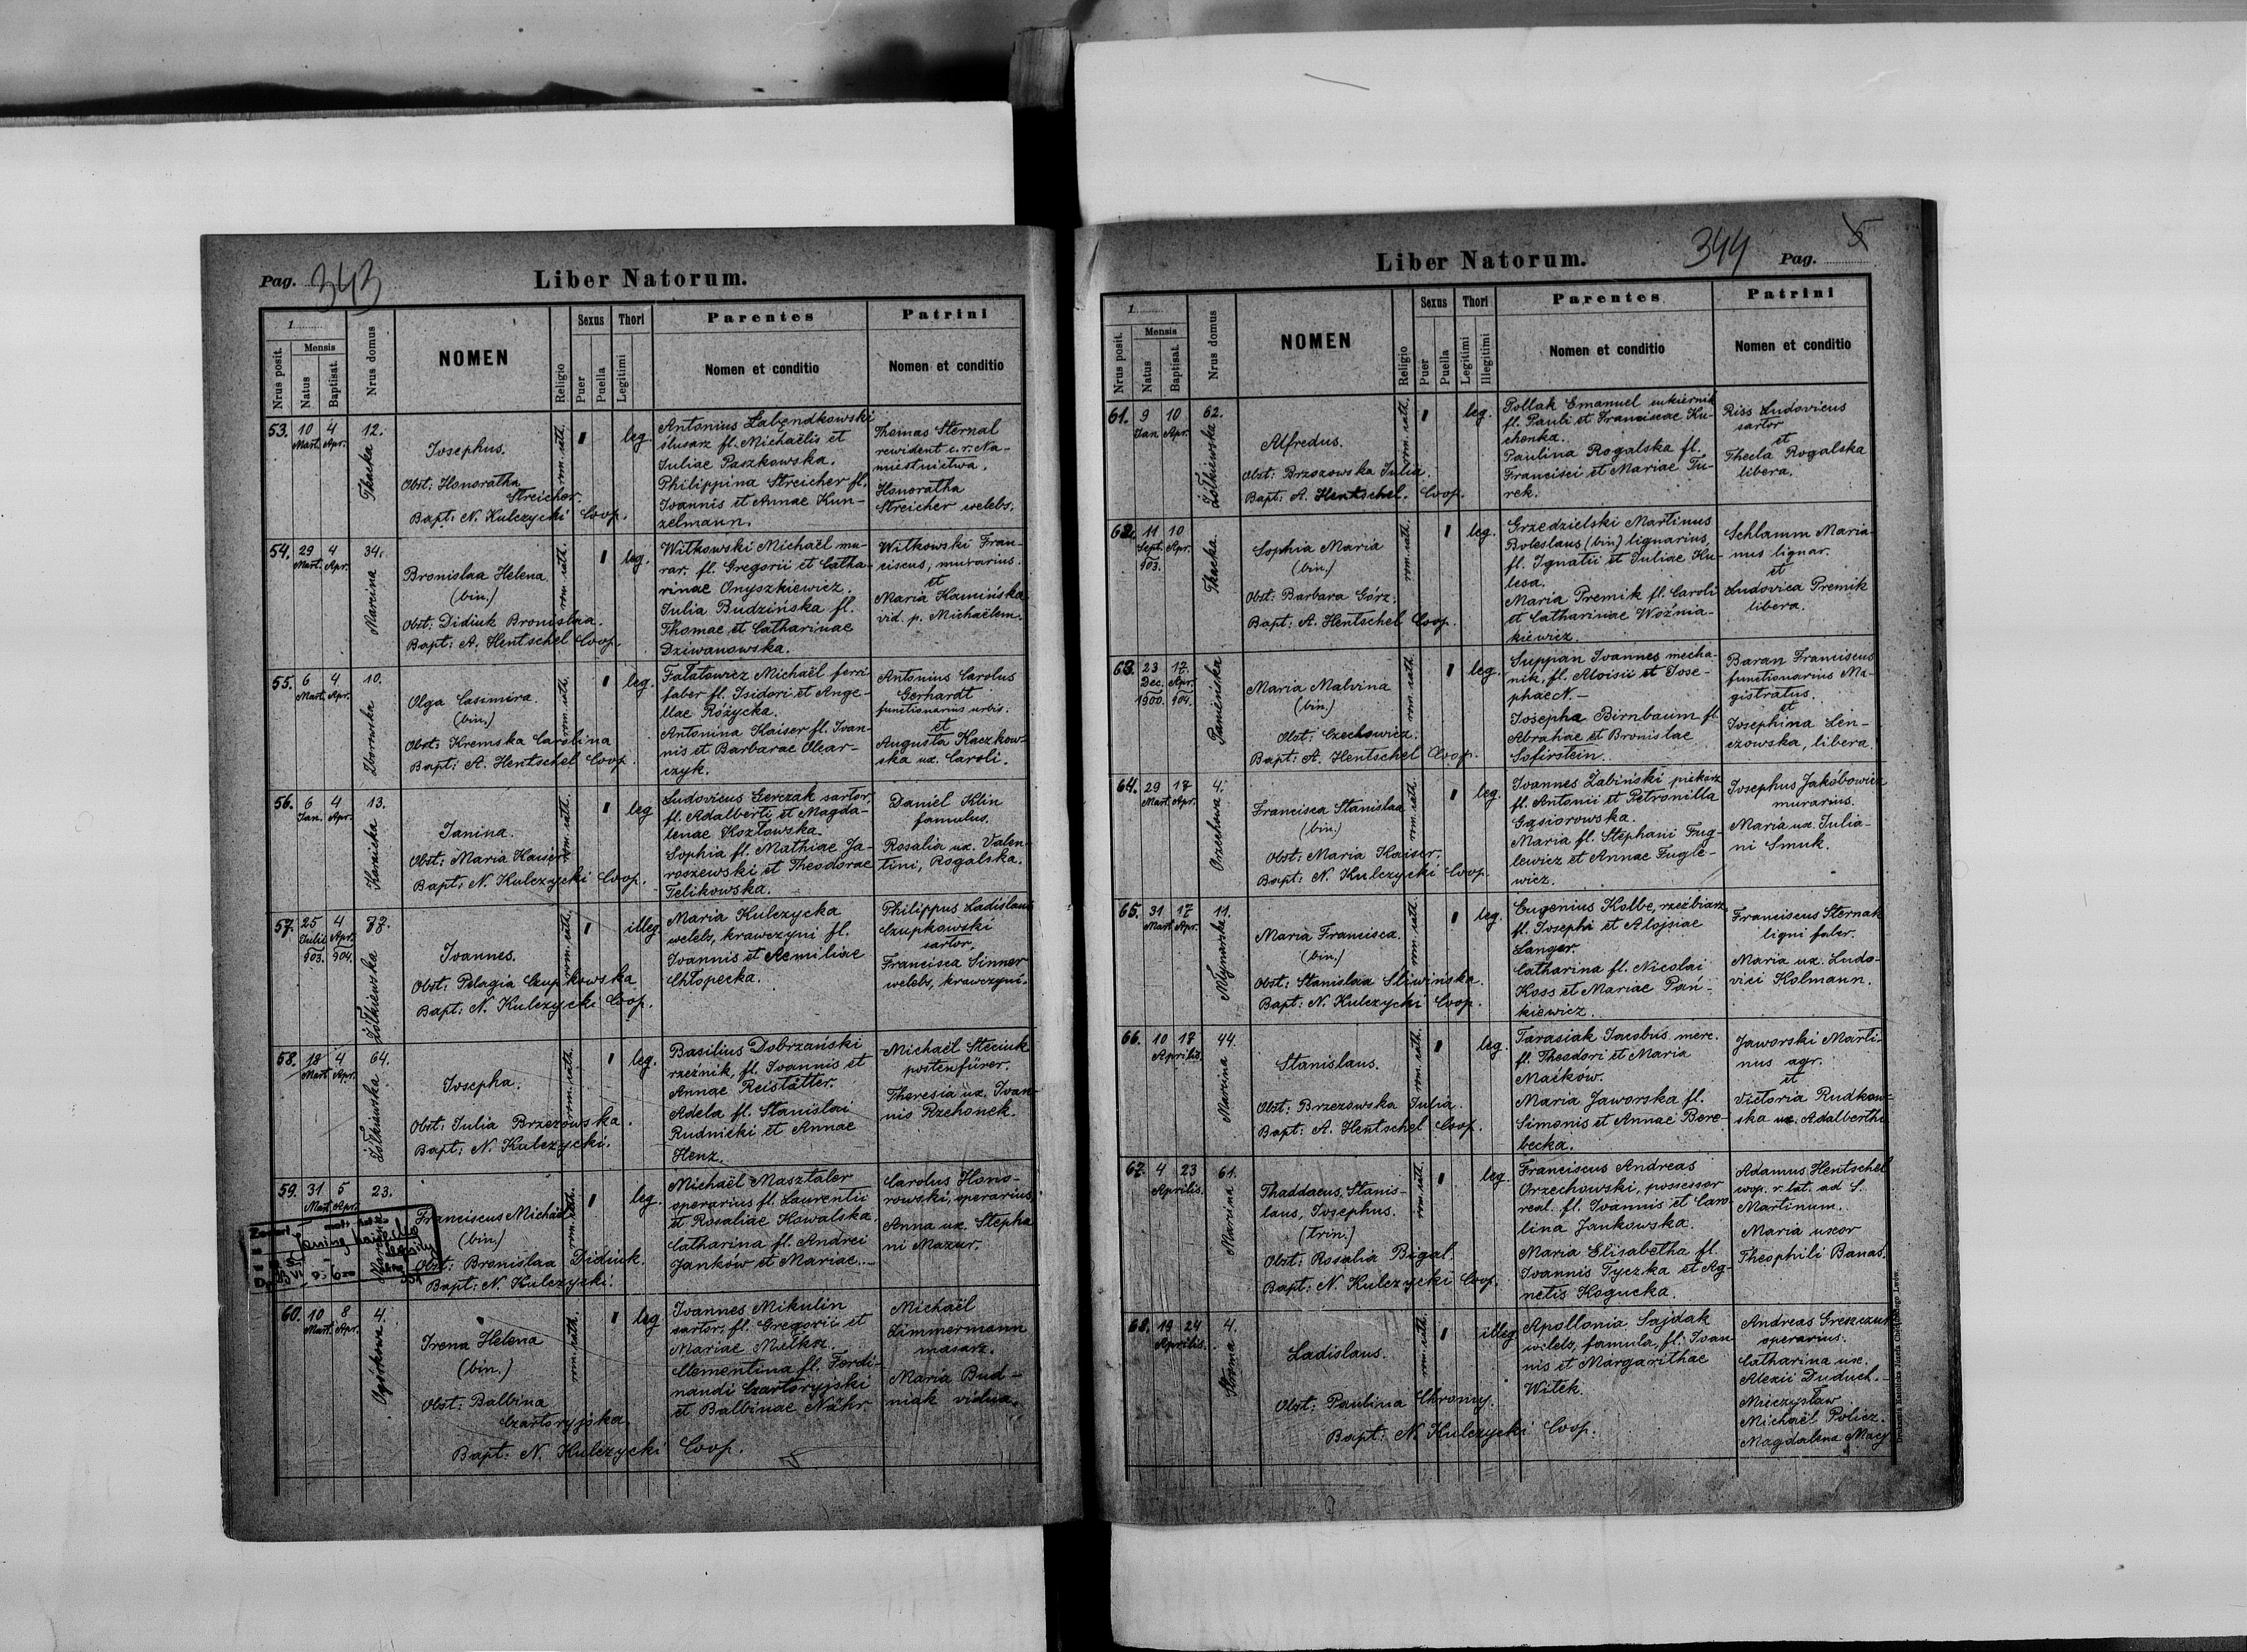 Pag. 343
Liber Natorum.
1
Nrus posit.
Mensis
Natus
Baptisat.
Nrus domus
NOMEN
Religio
Sexus
Puer
Puella
Thori
Legitimi
Parentes
Nomen et conditio
Patrini
Nomen et conditio
53. 10 4 12.
Mart. Apr.
Tkacka
Josephus.
Obst: Honoratha
Streicher.
Bapt: N. Kulczycki Coop.
rom. cath.
leg.
Antonius Łabendkowski
ślusarz fl. Michaëlis et
Juliae Paszkowska.
Philippina Streicher fl.
Joannis et Annae Kun-
zelmann.
Thomas Sternal
rewident c. r. Na-
miestnictwa.
Honoratha
Streicher welebs.
54. 29 4 34.
Mart. Apr.
Marcina
Bronislaa Helena
(bin.)
Obst: Didiuk Bronislaa.
Bapt: A. Hentschel Coop.
rom. cath.
leg.
Witkowski Michaël mu-
rar. fl. Gregorii et Catha-
rinae Onyszkiewicz.
Julia Budzińska fl.
Thomae et Catharinae
Dziwanowska.
Witkowski Fran-
ciscus, murarius.
et
Maria Kamińska
vid. p. Michaëlem.
55. 6 4 10.
Mart. Apr.
Zborowska
Olga Casimira.
(bin.)
Obst: Kremska Carolina
Bapt: A. Hentschel Coop.
rom. cath.
leg.
Fałatowicz Michaël ferri
faber fl. Isidori et Ange-
llae Różycka.
Antonina Kaiser fl. Joan-
nis et Barbarae Olear-
czyk.
Antonius Carolus
Gerhardt
functionarius urbis.
et
Augusta Kaczkow-
ska ux. Caroli.
56. 6 4 13.
Jan. Apr.
Janina.
Obst: Maria Kaiser
Bapt: N. Kulczycki Coop.
rom. cath.
leg
Ludovicus Gerczak sartor,
fl. Adalberti et Magda-
lenae Kozłowska.
Sophia fl. Mathiae Ja-
roszewski et Theodorae
Telikowska.
Daniel Klin
famulus.
Rosalia ux. Valen-
tini, Rogalska.
57. 25 4 77.
Julii Apr.
903. 904.
Żółkiewska
Joannes.
Obst: Pelagia Czupkowska
Bapt: N. Kulczycki Coop.
rom. cath.
illeg.
Maria Kulczycka
welebs, krawczyni fl.
Joannis et Aemiliae
Chłopecka.
Philippus Ladislaus
Czupkowski
sartor.
Francisca Sinner
welebs, krawczyni.
58. 18 4 64.
Mart. Apr.
Żółkiewska
Josepha.
Obst: Julia Brzezowska.
Bapt: N. Kulczycki.
rom. cath.
leg.
Basilius Dobrzański
rzeźnik, fl. Joannis et
Annae Reistätter.
Adela fl. Stanislai
Rudnicki et Annae
Henz.
Michaël Steciuk
postenfürer.
Theresia ux. Joan-
nis Rzehonek.
59. 31 5 23.
Mart. Apr.
Franciscus Michaël
(bin.)
Obst: Bronislaa Didiuk.
Bapt: N. Kulczycki.
rom. cath.
leg.
Michaël Masztaler
operarius fl. Laurentii
et Rosaliae Kowalska.
Catharina fl. Andrei
Janków et Mariae...
Carolus Hono-
rowski, operarius
Anna ux. Stepha
ni Mazur.
60. 10 8 4.
Mart. Apr.
Ogórkowa
Irena Helena
(bin.)
Obst: Balbina
Czartoryjska.
Bapt: N. Kulczycki Coop.
rom. cath.
leg
Joannes Mikulin
sartor, fl. Gregorii et
Mariae
Clementina fl. Ferdi-
nandi Czartoryjski
et Balbinae Nähr
Michaël
Zimmermann
masarz.
Maria Bud-
niak vidua.
Liber Natorum.
344 Pag. 5
1
Nrus posit.
Mensis
Natus
Baptisat.
Nrus domus
NOMEN
Religio
Sexus
Puer
Puella
Thori
Legitimi
Illegitimi
Parentes
Nomen et conditio
Patrini
Nomen et conditio
61. 9 10 62.
Jan. Apr.
Żółkiewska
Alfredus.
Obst: Brzozowska Julia.
Bapt: A. Hentschel. Coop.
rom. cath.
leg.
Pollak Emanuel cukiernik
fl. Pauli et Franciscae Ku-
chenka.
Paulina Rogalska fl.
Francisci et Mariae Tu-
rek.
Riss Ludovicus
sartor
et
Thecla Rogalska
libera.
62. 11 10
Sept. Apr.
903.
Tkacka.
Sophia Maria
(bin.)
Obst: Barbara Górz.
Bapt: A. Hentschel Coop.
rom. cath.
leg.
Grzedzielski Martinus
Boleslaus (bin) lignarius,
fl. Ignatii et Juliae Ku-
lesa.
Maria Premik fl. Caroli
et Catharinae Woźnia-
kiewicz.
Schlamm Maria-
nus lignar.
et
Ludovica Premik
libera.
63. 23 17
Dec. Apr.
1900. 904.
Panieńska
Maria Malvina
(bin.)
Obst: Czechowicz.
Bapt: A. Hentschel Coop.
rom. cath.
leg.
Suppan Joannes mecha-
nik, fl. Aloisii et Jose-
phae N.-
Josepha Birnbaum fl.
Abrahae et Bronislae
Sofirstein.
Baran Franciscus
functionarius Ma-
gistratus.
et
Josephina Len-
czowska, libera.
64. 29 17 4.
Mart. Apr.
Orzechowa
Francisca Stanislaa
(bin.)
Obst: Maria Kaiser.
Bapt: N. Kulczycki Coop.
rom. cath.
leg.
Joannes Żabiński piekarz
fl. Antonii et Petronilla
Gąsiorowska.
Maria fl. Stephani Fug-
lewicz et Annae Fugle-
wicz.
Josephus Jakóbowicz
murarius.
Maria ux. Julia-
ni Smuk.
65. 31 17 11.
Mart. Apr.
Młynarska
Maria Francisca.
(bin.)
Obst: Stanislaa Sliwińska.
Bapt: N. Kulczycki Coop.
rom. cath.
leg.
Eugenius Kolbe, rzeźbiarz,
fl. Josephi et Alojsiae
Langer.
Catharina fl. Nicolai
Koss et Mariae Pań-
kiewicz.
Franciscus Sternak
ligni faber.
Maria ux. Ludo-
vici Kolmann.
66. 10 17 44.
Aprilis.
Marcina
Stanislaus.
Obst: Brzezowska Julia.
Bapt: A. Hentschel Coop.
rom. cath.
leg.
Tarasiak Jacobus merc.
fl. Theodori et Maria
Maćków.
Maria Jaworska fl.
Simonis et Annae Bere-
becka.
Jaworski Marti-
nus agr.
et
Victoria Rudkow-
ska ux. Adalberthi
67. 4 23 61.
Aprilis.
Marcina
Thaddaeus, Stanis-
laus, Josephus.
(trin.)
Obst: Rosalia Bigal
Bapt: N. Kulczycki Coop.
rom. cath.
leg.
Franciscus Andreas
Orzechowski, possessor
real. fl. Joannis et Caro-
lina Jankowska.
Maria Elisabetha fl.
Joannis Tyczka et Ag-
netis Kogucka.
Adamus Hentschel
coop. r. lat. ad S.
Martinum.
Maria uxor
Theophili Banas.
68. 19 24 4.
Aprilis.
Ladislaus.
Obst: Paulina Chromy.
Bapt: N. Kulczycki Coop.
rom. cath.
illeg
Apollonia Sajdak
welebs, famula, fl. Joan-
nis et Margarithae
Witek.
Andreas Greszczuk
operarius.
Catharina ux.
Alexii Duduch.-
Mieczysław
Michaël Policz.
Magdalena Macj